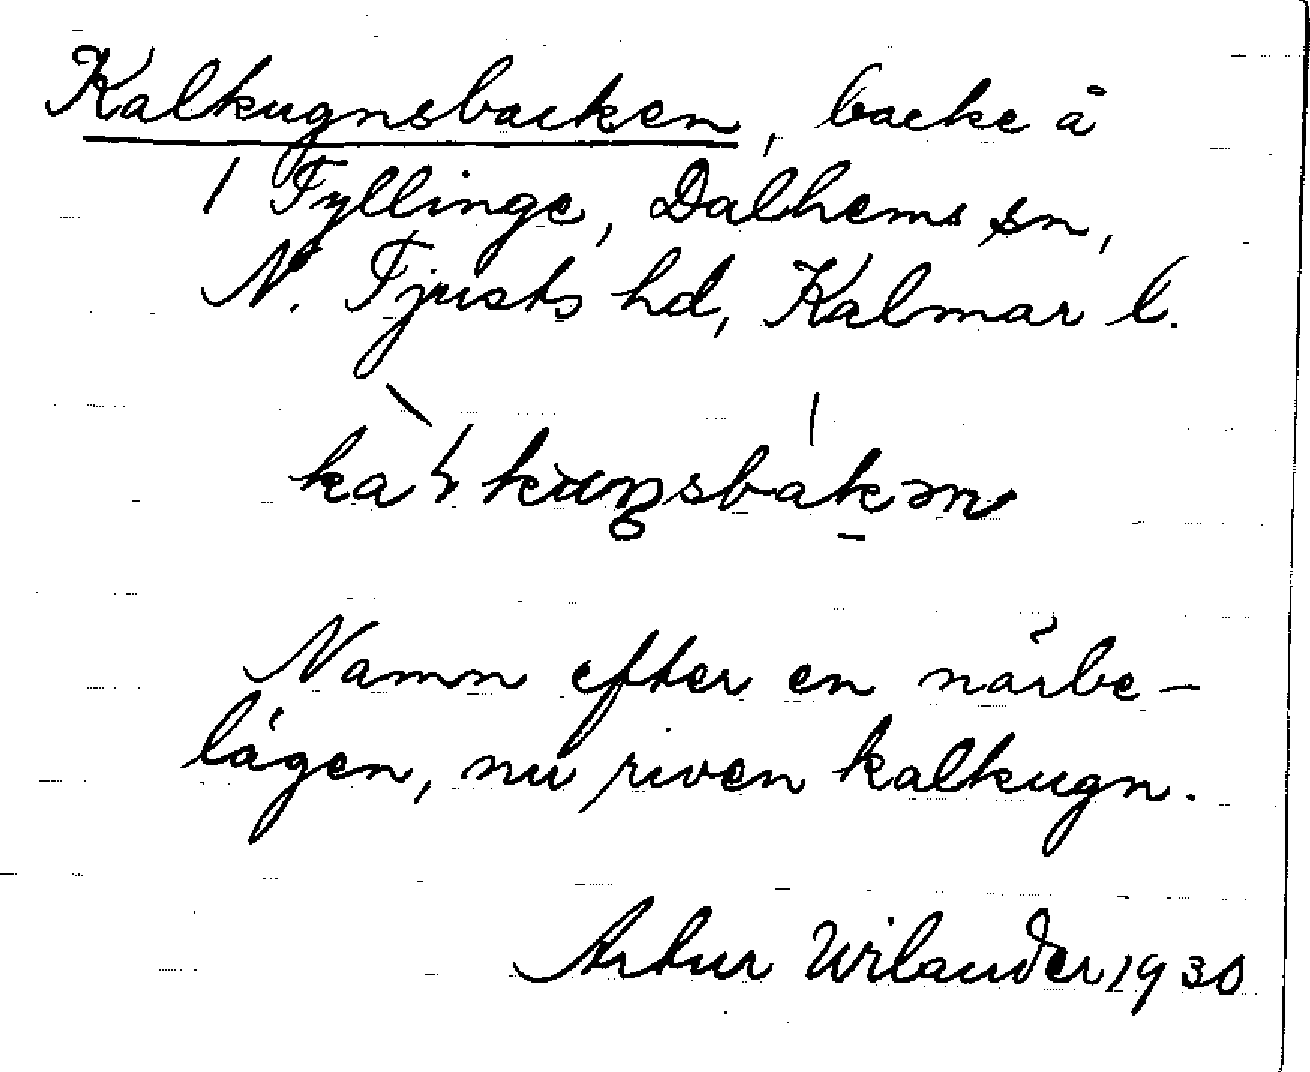 Kalkugnsbacken, backe å
/ Fyllinge, Dalhems sn,
N. Tjusts hd, Kalmar l.
Namn efter en närbe-
lägen, nu riven kalkugn.
Artur Wilander 1930